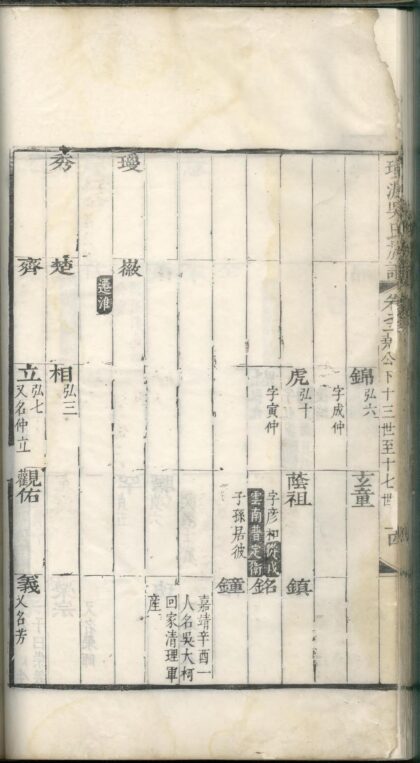 源吳氏族
公下十三世至十七世
錦
弘六
字成仲
玄童
虎
弘十
字寅仲
蔭祖
字彥和從戍
雲南普定衛
子孫居彼
鎮
銘
鐘
嘉靖辛酉一
人名吳大柯
回家清理軍
產
璦
徹
遷淮
秀
楚
相
弘三
齊
立
弘七
又名仲立
觀佑
義
又名芳